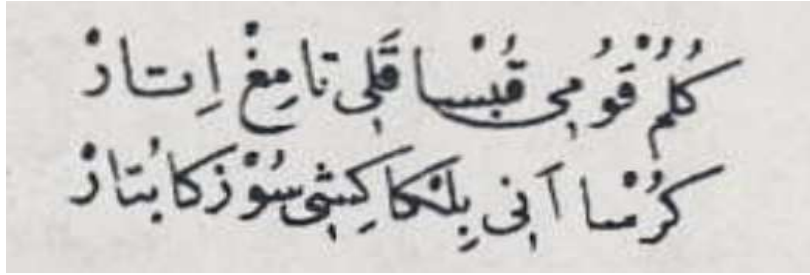 كُلُمْ قُوْمِى قُبْسا قَلِى تامِغْ اِتارْ
كُرْسا اَنِى بِلْكا كِشِى سُوْزكا بُتارْ